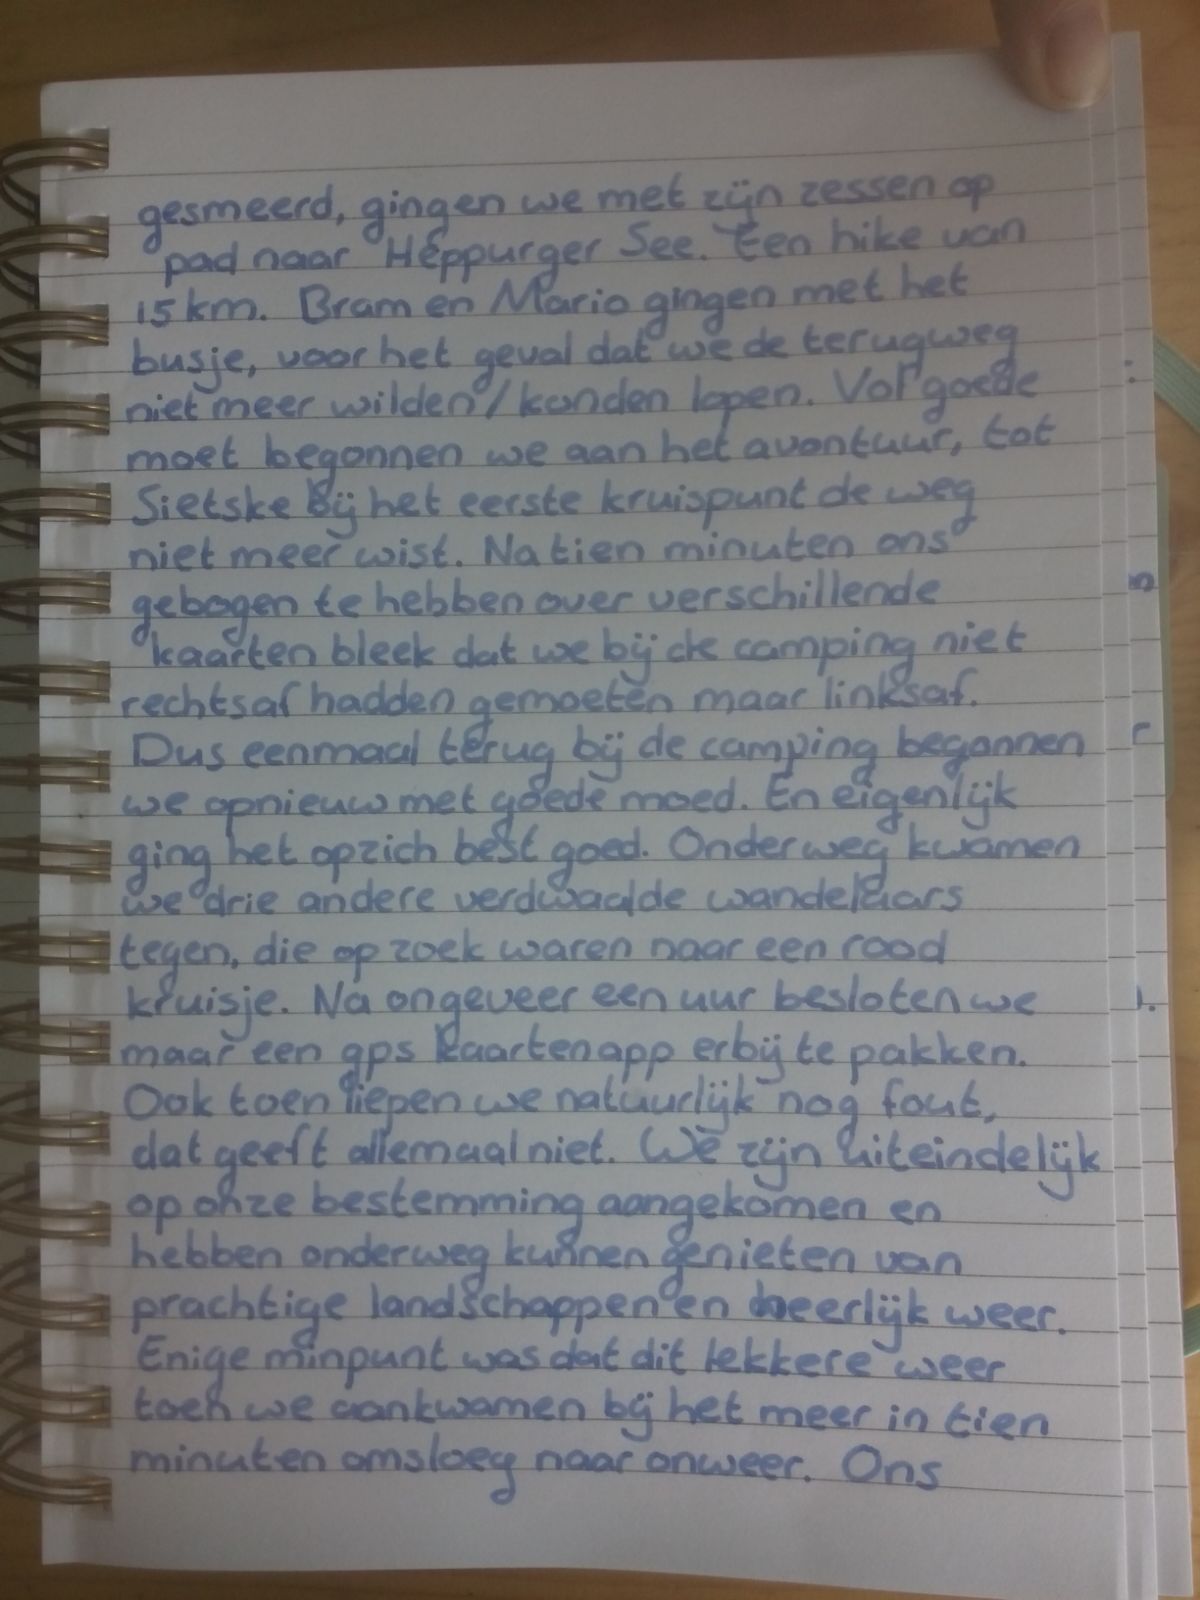 gesmeerd, gingen we met zijn zessen op
pad naar Heppurger See. Een hike van
15 km. Bram en Mario gingen met het
busje, voor het geval dat we de terugweg
niet meer wilden/konden lopen. Vol goede
moet begonnen we aan het avontuur, tot
Sietske bij het eerste kruispunt de weg
niet meer wist. Na tien minuten ons
gebogen te hebben over verschillende
kaarten bleek dat we bij de camping niet
rechtsaf hadden gemoeten maar linksaf.
Dus eenmaal terug bij de camping begonnen
we opnieuw met goede moed. En eigenlijk
ging het opzich best goed. Onderweg kwamen
we drie andere verdwaalde wandelaars
tegen, die op zoek waren naar een rood
kruisje. Na ongeveer een uur besloten we
maar een gps kaarten app erbij te pakken.
Ook toen liepen we natuurlijk nog fout,
dat geeft allemaal niet. We zijn uiteindelijk
op onze bestemming aangekomen en
hebben onderweg kunnen genieten van
prachtige landschappen en heerlijk weer.
Enige minpunt was dat dit lekkere weer
toen we aankwamen bij het meer in tien
minuten omsloeg naar onweer. Ons